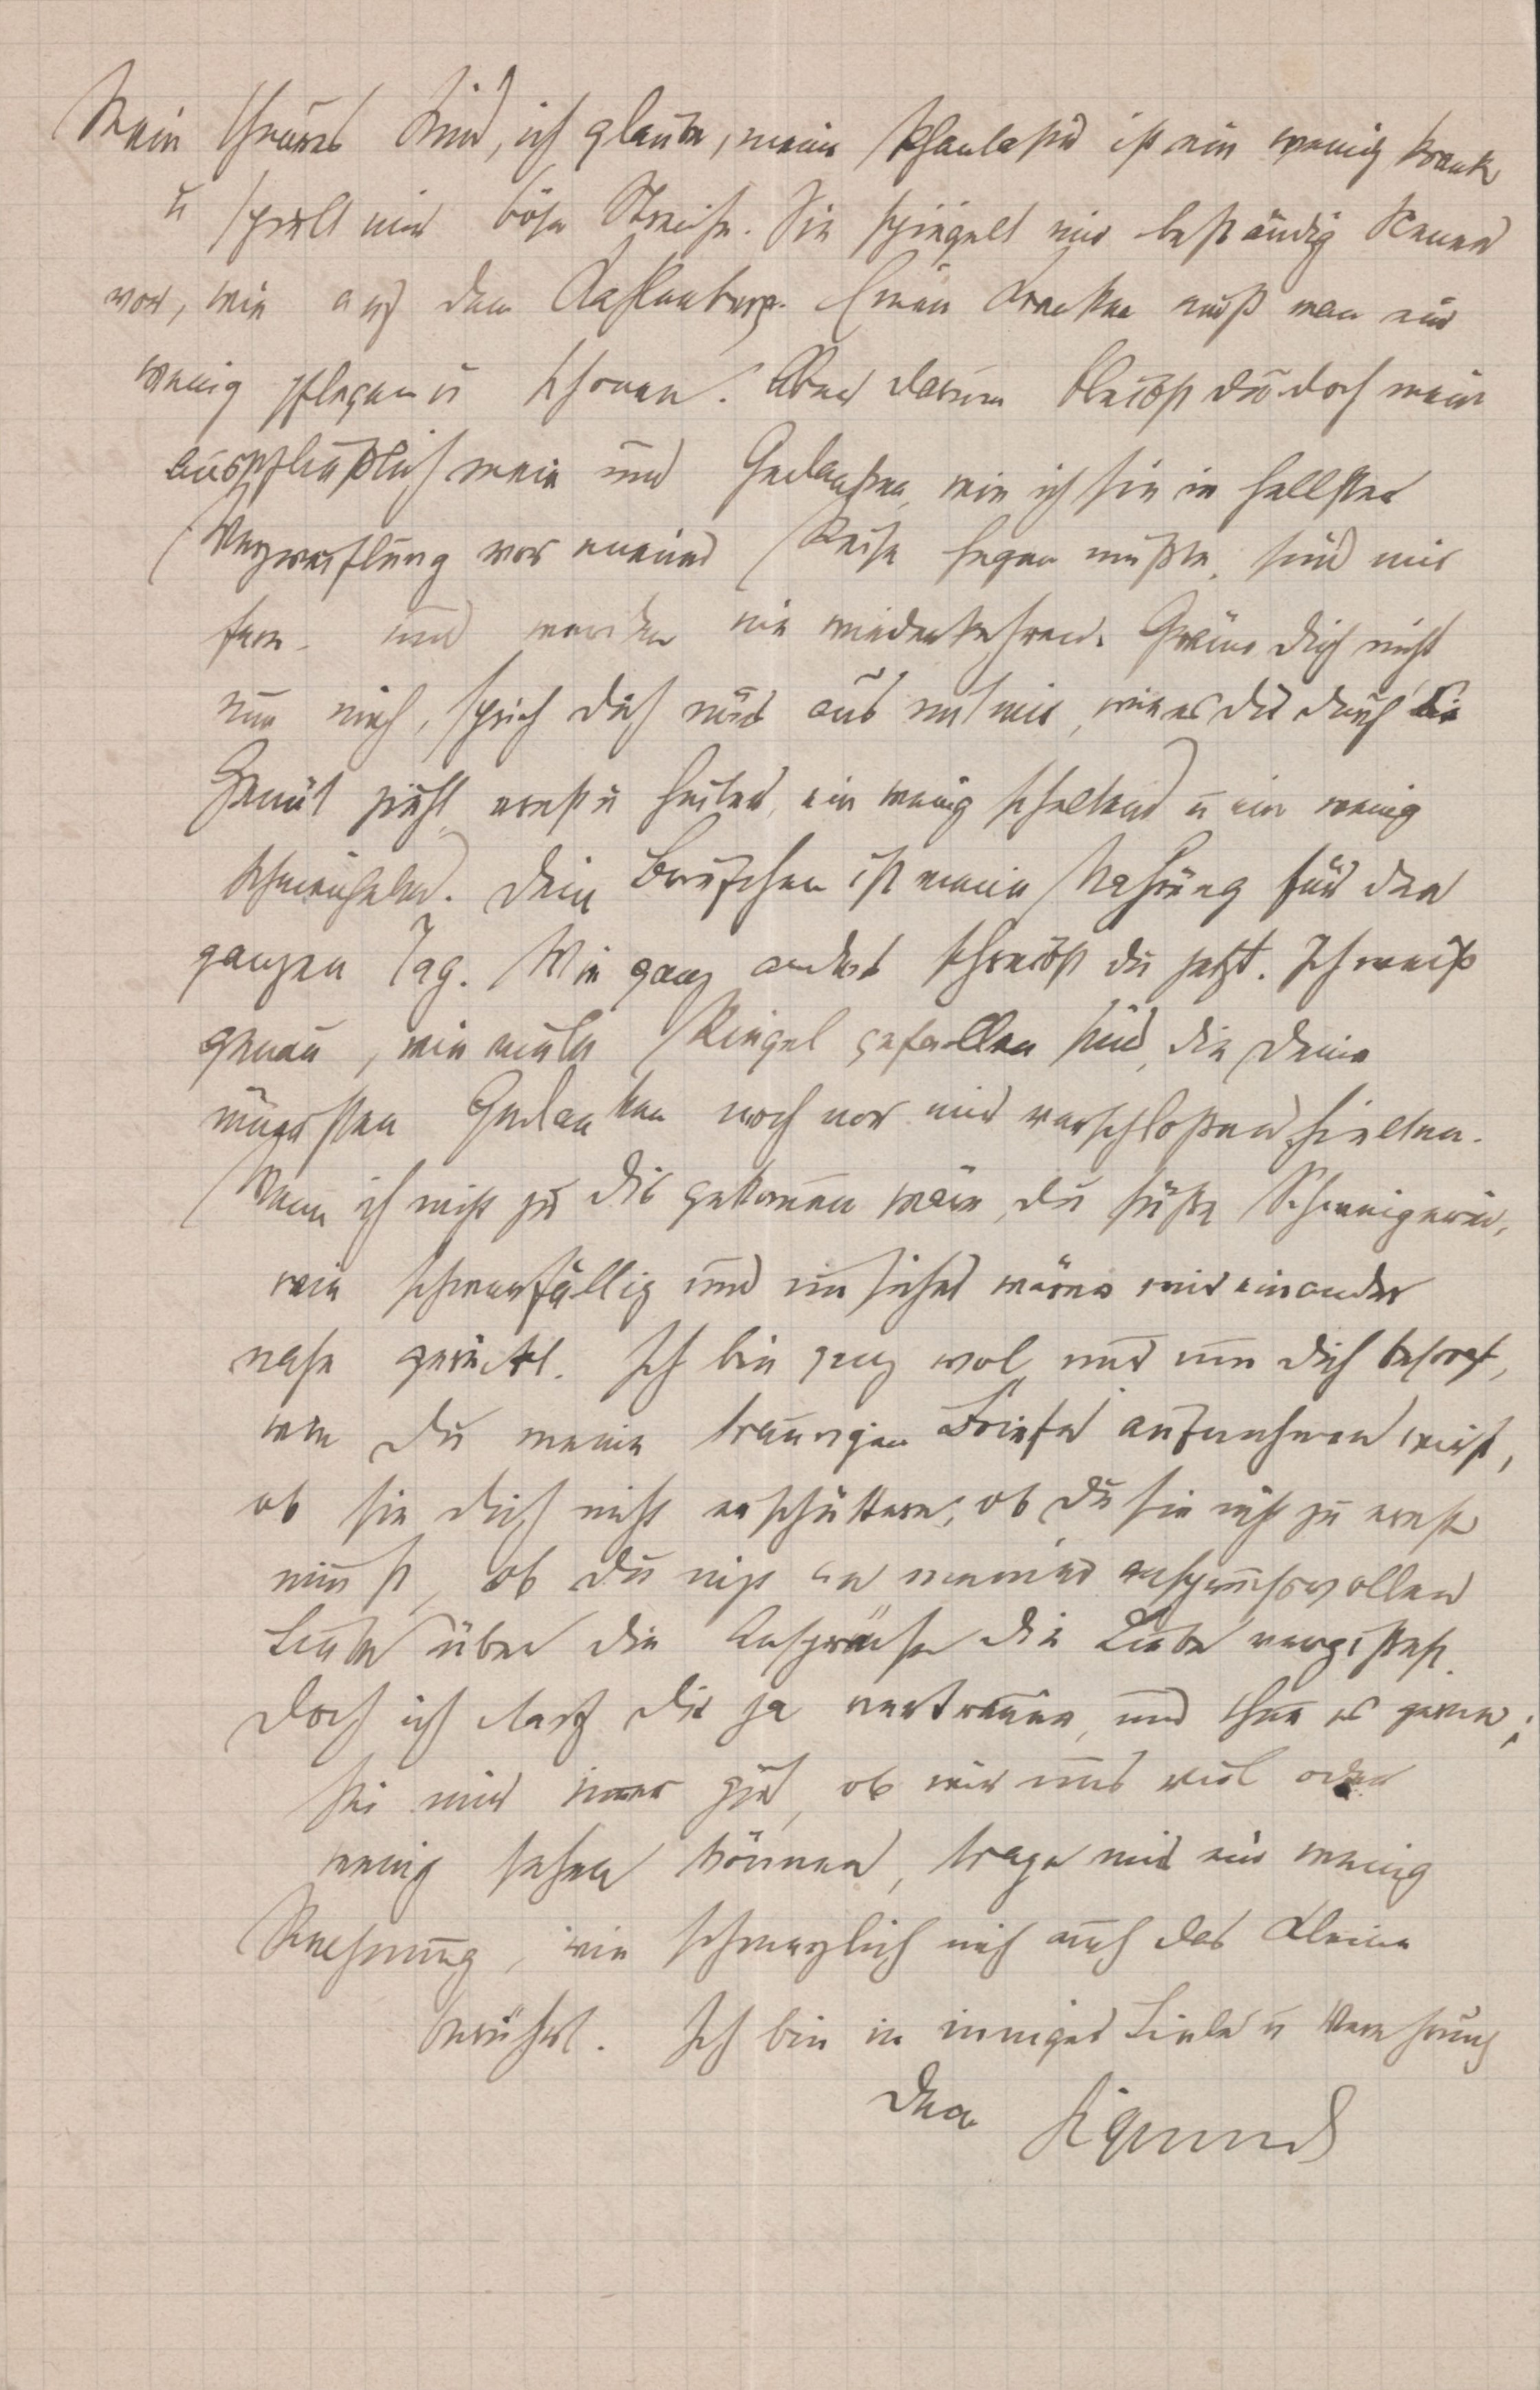 Mein theures Kind, ich glaube, meine Phantasie ist ein wenig krank
u spielt mir böse Streiche. Sie spiegelt mir beständig Scenen
vor, wie auf dem Kahlenberg. Einen Kranken muß man ein
wenig pflegen u schonen. Aber darum bleibst du doch mein
ausschließlich mein und Gedanken, wie ich sie in hellster
Verzweiflung vor meiner Reise hegen mußte, sind mir
fern und werden nie wiederkehren. Gräme dich nicht
um mich, sprich dich nur aus mit mir, wie es dir durch die
Gemüt zieht, ernst u heiter, ein wenig scheltend u ein wenig
schmeichelnd. Dein Briefchen ist meine Nahrung für den
ganzen Tag. Wie ganz anders schreibst du jetzt. Ich weiß
genau, wie viele Riegel gefallen sind, die deine
innersten Gedanken noch vor mir verschloßen hielten.
Wenn ich nicht zu dir gekommen wäre, du süße Schweigerin,
wie schwerfällig und unsicher wären wir einander
nahe gerückt. Ich bin ganz wol, nur um dich besorgt,
wie du meine traurigen Briefe aufnehmen wirst,
ob sie dich nicht erschüttern, ob du sie nicht zu ernst
nimmst, ob du nicht an meiner anspruchsvollen
Liebe über die Ansprüche die Liebe vergißest.
Doch ich darf dir ja vertrauen, und thue es gerne;
sei mir immer gut, ob wir uns viel oder
wenig sehen können, trage mir ein wenig
Rechnung, wie schmerzlich mich auch das Kleine
berührt. Ich bin in inniger Liebe u Verehrung
Dein Sigmund